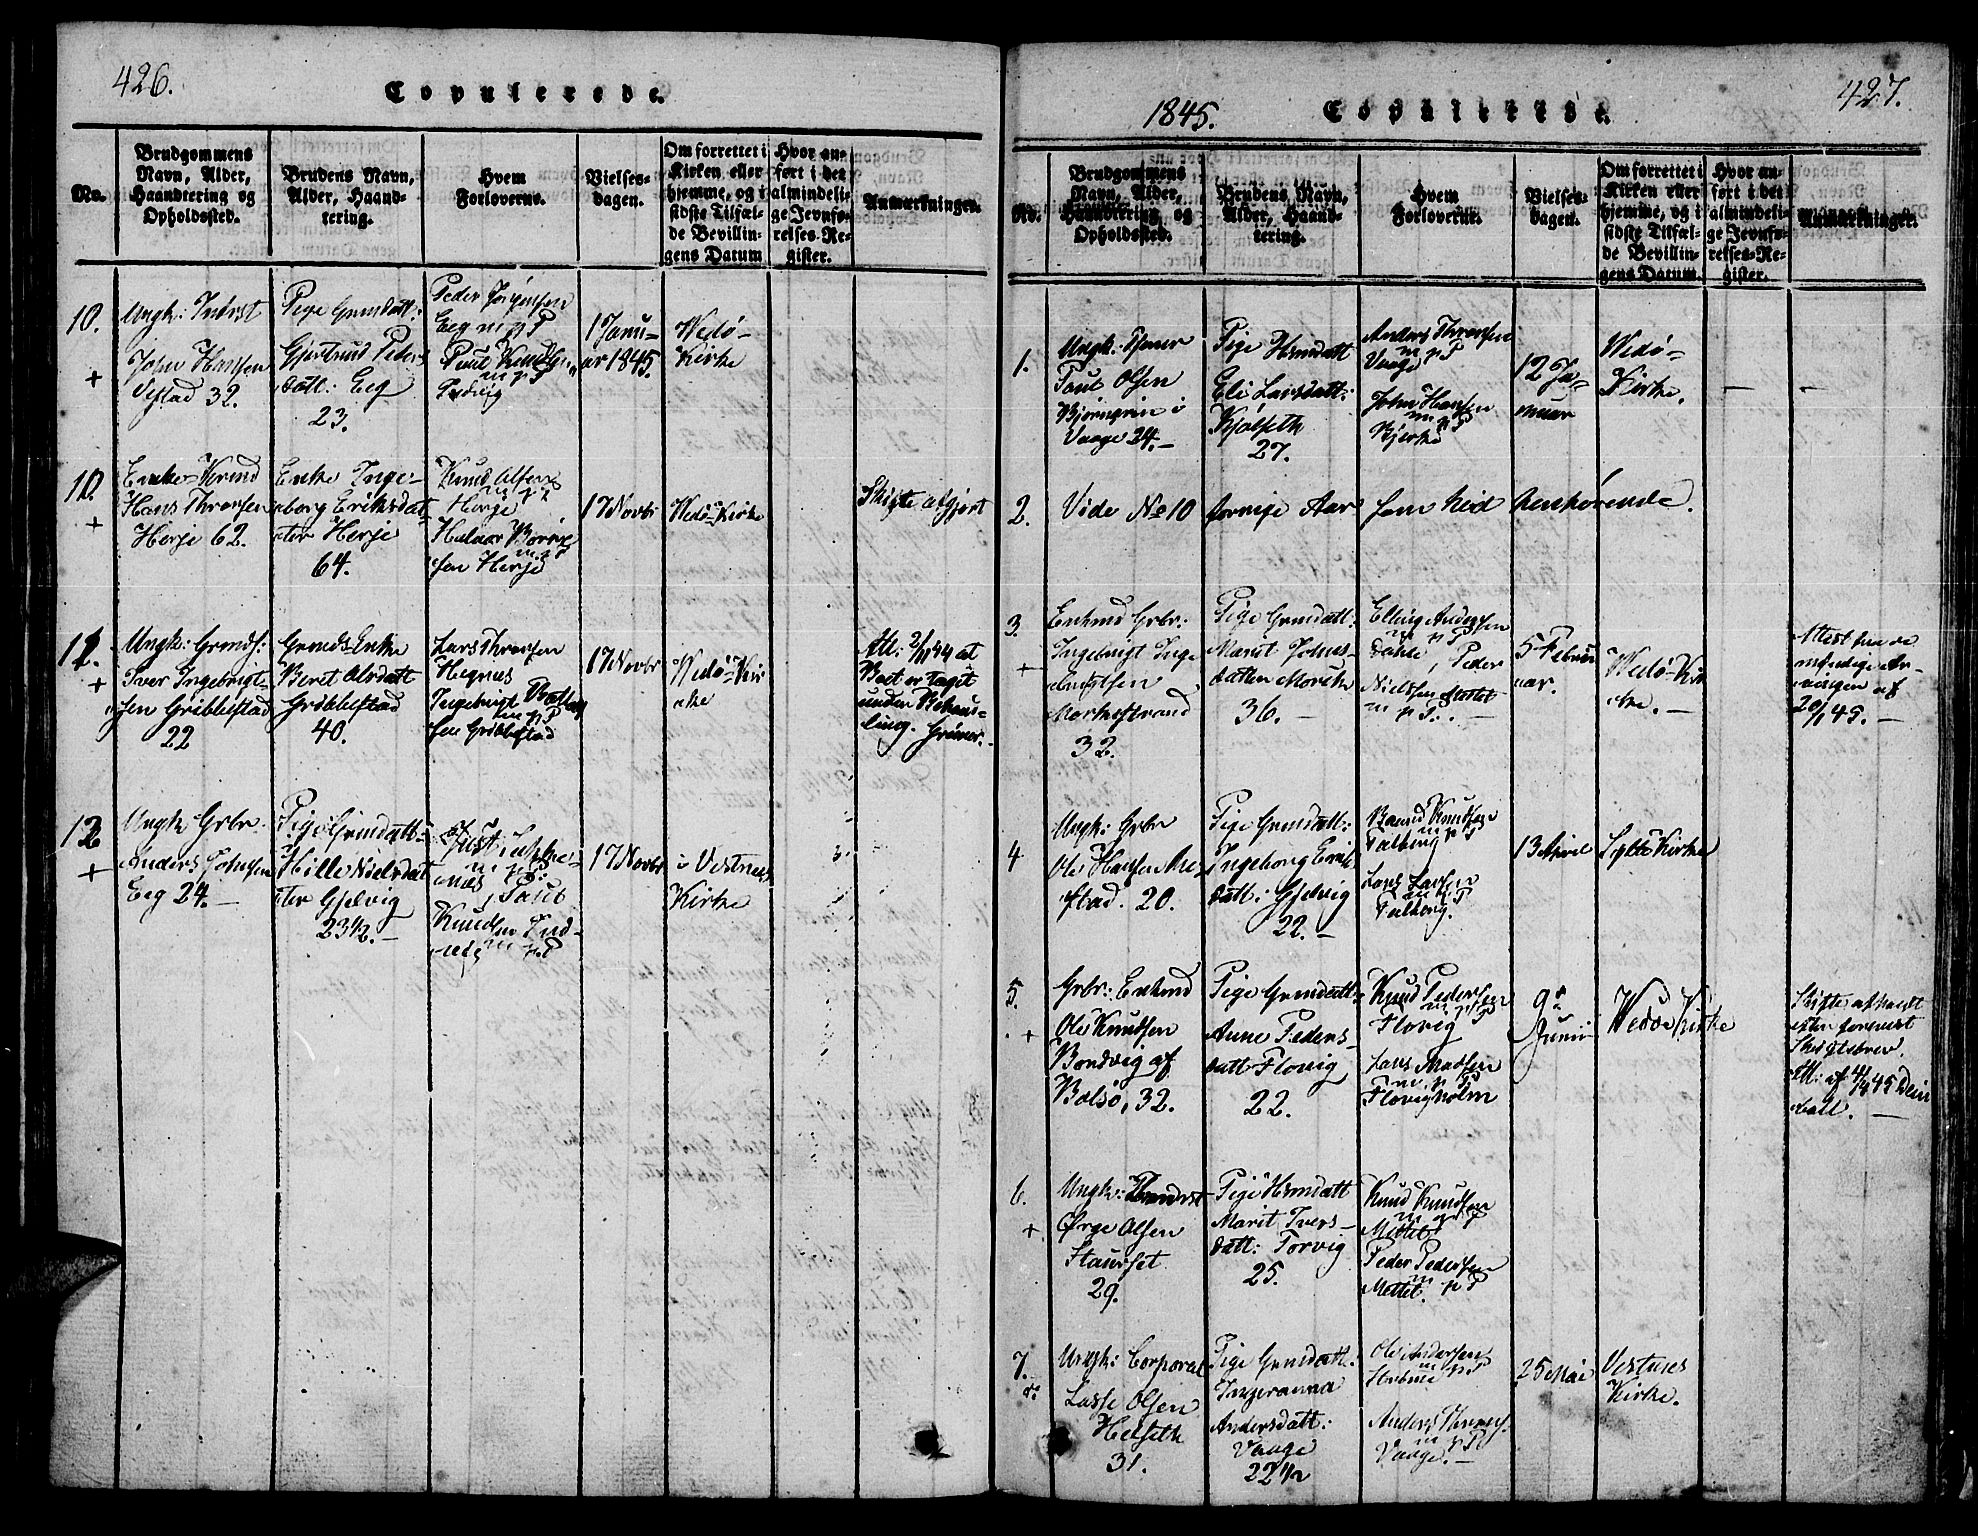 426.
Copulerede.
No.
Brudgommens
Navn, Alder,
Haandtering og
Opholdssted.
Brudens Navn,
Alder, Haand-
tering.
Hvem
Forloverne.
Vielses-
dagen.
Om forrettet i
Kirken eller
hjemme, og i
sidste Tilfæl-
de Bevillin-
gens Datum
Hvor an-
ført i det
almindeli-
ge Jevnfø-
relses-Re-
gister.
Anmærkninger.
10.
+
Ungk: Inderst
John Hansen
Vestad 32.
Pige Grmdatt:
Gjertrud Peders
datt: Eeg
23.
Peder Jørgensen
Eeg m p P
Poul Knudsen
m p P
1 Janu-
ar 1845.
Wedø-
Kirke
10.
+
Enke-Mand
Hans Thronsen
Herje 62.
Enke Inge-
borg Eriksdat-
ter Herje
64.
Knud Olsen
m p P
Herje
Halvor
m p P
sen Herje
17 Novbr
Wedø-Kirke
Skifte afgjort
11.
+
Ungk: Grmds:
Iver Ingebrigt-
sen Gribbestad
22
Grmds Enke
Beret Olsdatt
Gribbestad
40.
Lars Thronsen
Hegnes
Ingebrigt
m p P
sen Gribbestad
17 Novbr
Wedø-Kir
ke
Att: 2/11 44 at
Boet er taget
under Behand-
ling.
12
+
Ungk Grbr
Anders Johnsen
Eeg 24.-
Pige Grmdatt:
Hille Nielsdat
ter Gjelvig
23 1/2.-
m p P.
Knudsen
m p P
17 Novbr
i Vestnes
Kirke
427.
1845.
Copulerede.
No.
Brudgommens
Navn, Alder,
Haandtering og
Opholdssted.
Brudens Navn,
Alder, Haand-
tering.
Hvem
Forloverne.
Vielses-
dagen.
Om forrettet i
Kirken eller
hjemme, og i
sidste Tilfæl-
de Bevillin-
gens Datum.
Hvor an-
ført i det
almindeli-
ge Jevnfø-
relses-Re-
gister.
Anmærkninger.
1.
Ungk:
Poul Olsen
i
Vaage 24.-
Pige Hsmdatt
Eli Larsdatt:
Kjølseth
27.
Anders Thronsen
m p P
Vaage
John Hansen
m p P
Bjerke
12 Ja-
nuar
Wedø-
Kirke.
-
-
2.
Vide No 10 forrige Aar som hid henhørende.
3.
+
Enkmd Grbr:
Ingebrigt Inge
brigtsen
32.
Pige Grmdatt:
Marit Johns-
datter
36.-
Elling Andersen
m p P
Dahle, Peder
Nielsen Mettet
m p P. -
5 Febru
ar.
Wedø-Kir
ke.-
Attest fra de
myndige Ar-
vinger af
20/1 45.-
4
Ungk: Grbr
Ole Hansen
stad. 20.
Pige Grmdatt:
Ingeborg Erik
datt: Gjelvig
22.-
Knudsen
m p P
Lars Larsen
m p P
13 April
Sylte Kirke
5.
+
Grbr: Enkmd
Ole Knudsen
Bondvig af
Bolsø, 32.
Pige Grmdatt:
Anne Peders-
datt Flovig
22.
Knud Pedersen
m p P
Flovig
Lars Madsen
m p P
Flovigholm
9de
Juni
Wedøe Kirke
Skifte afholdt
efter foreviist
Skiftebrev.
Att: af 4/4 45
6.
+
Ungk:
Ørge Olsen
Staurset
29.
Pige Hsmdatt
Marit Ivers-
datt: Torvig
25.
Knud Knudsen
m p P
Mettet
Peder Pedersen
m p P
Mettet.
7.
Ungk: Corporal
Lasse Olsen
Helseth
31.
Pige Grmdatt:
Ingeranna
Andersdatt:
Vaage
22 1/2
Ole Andersen
m p P
Anders Throns.
m p P
Vaage.-
25 Mai
Vestnes
Kirke.